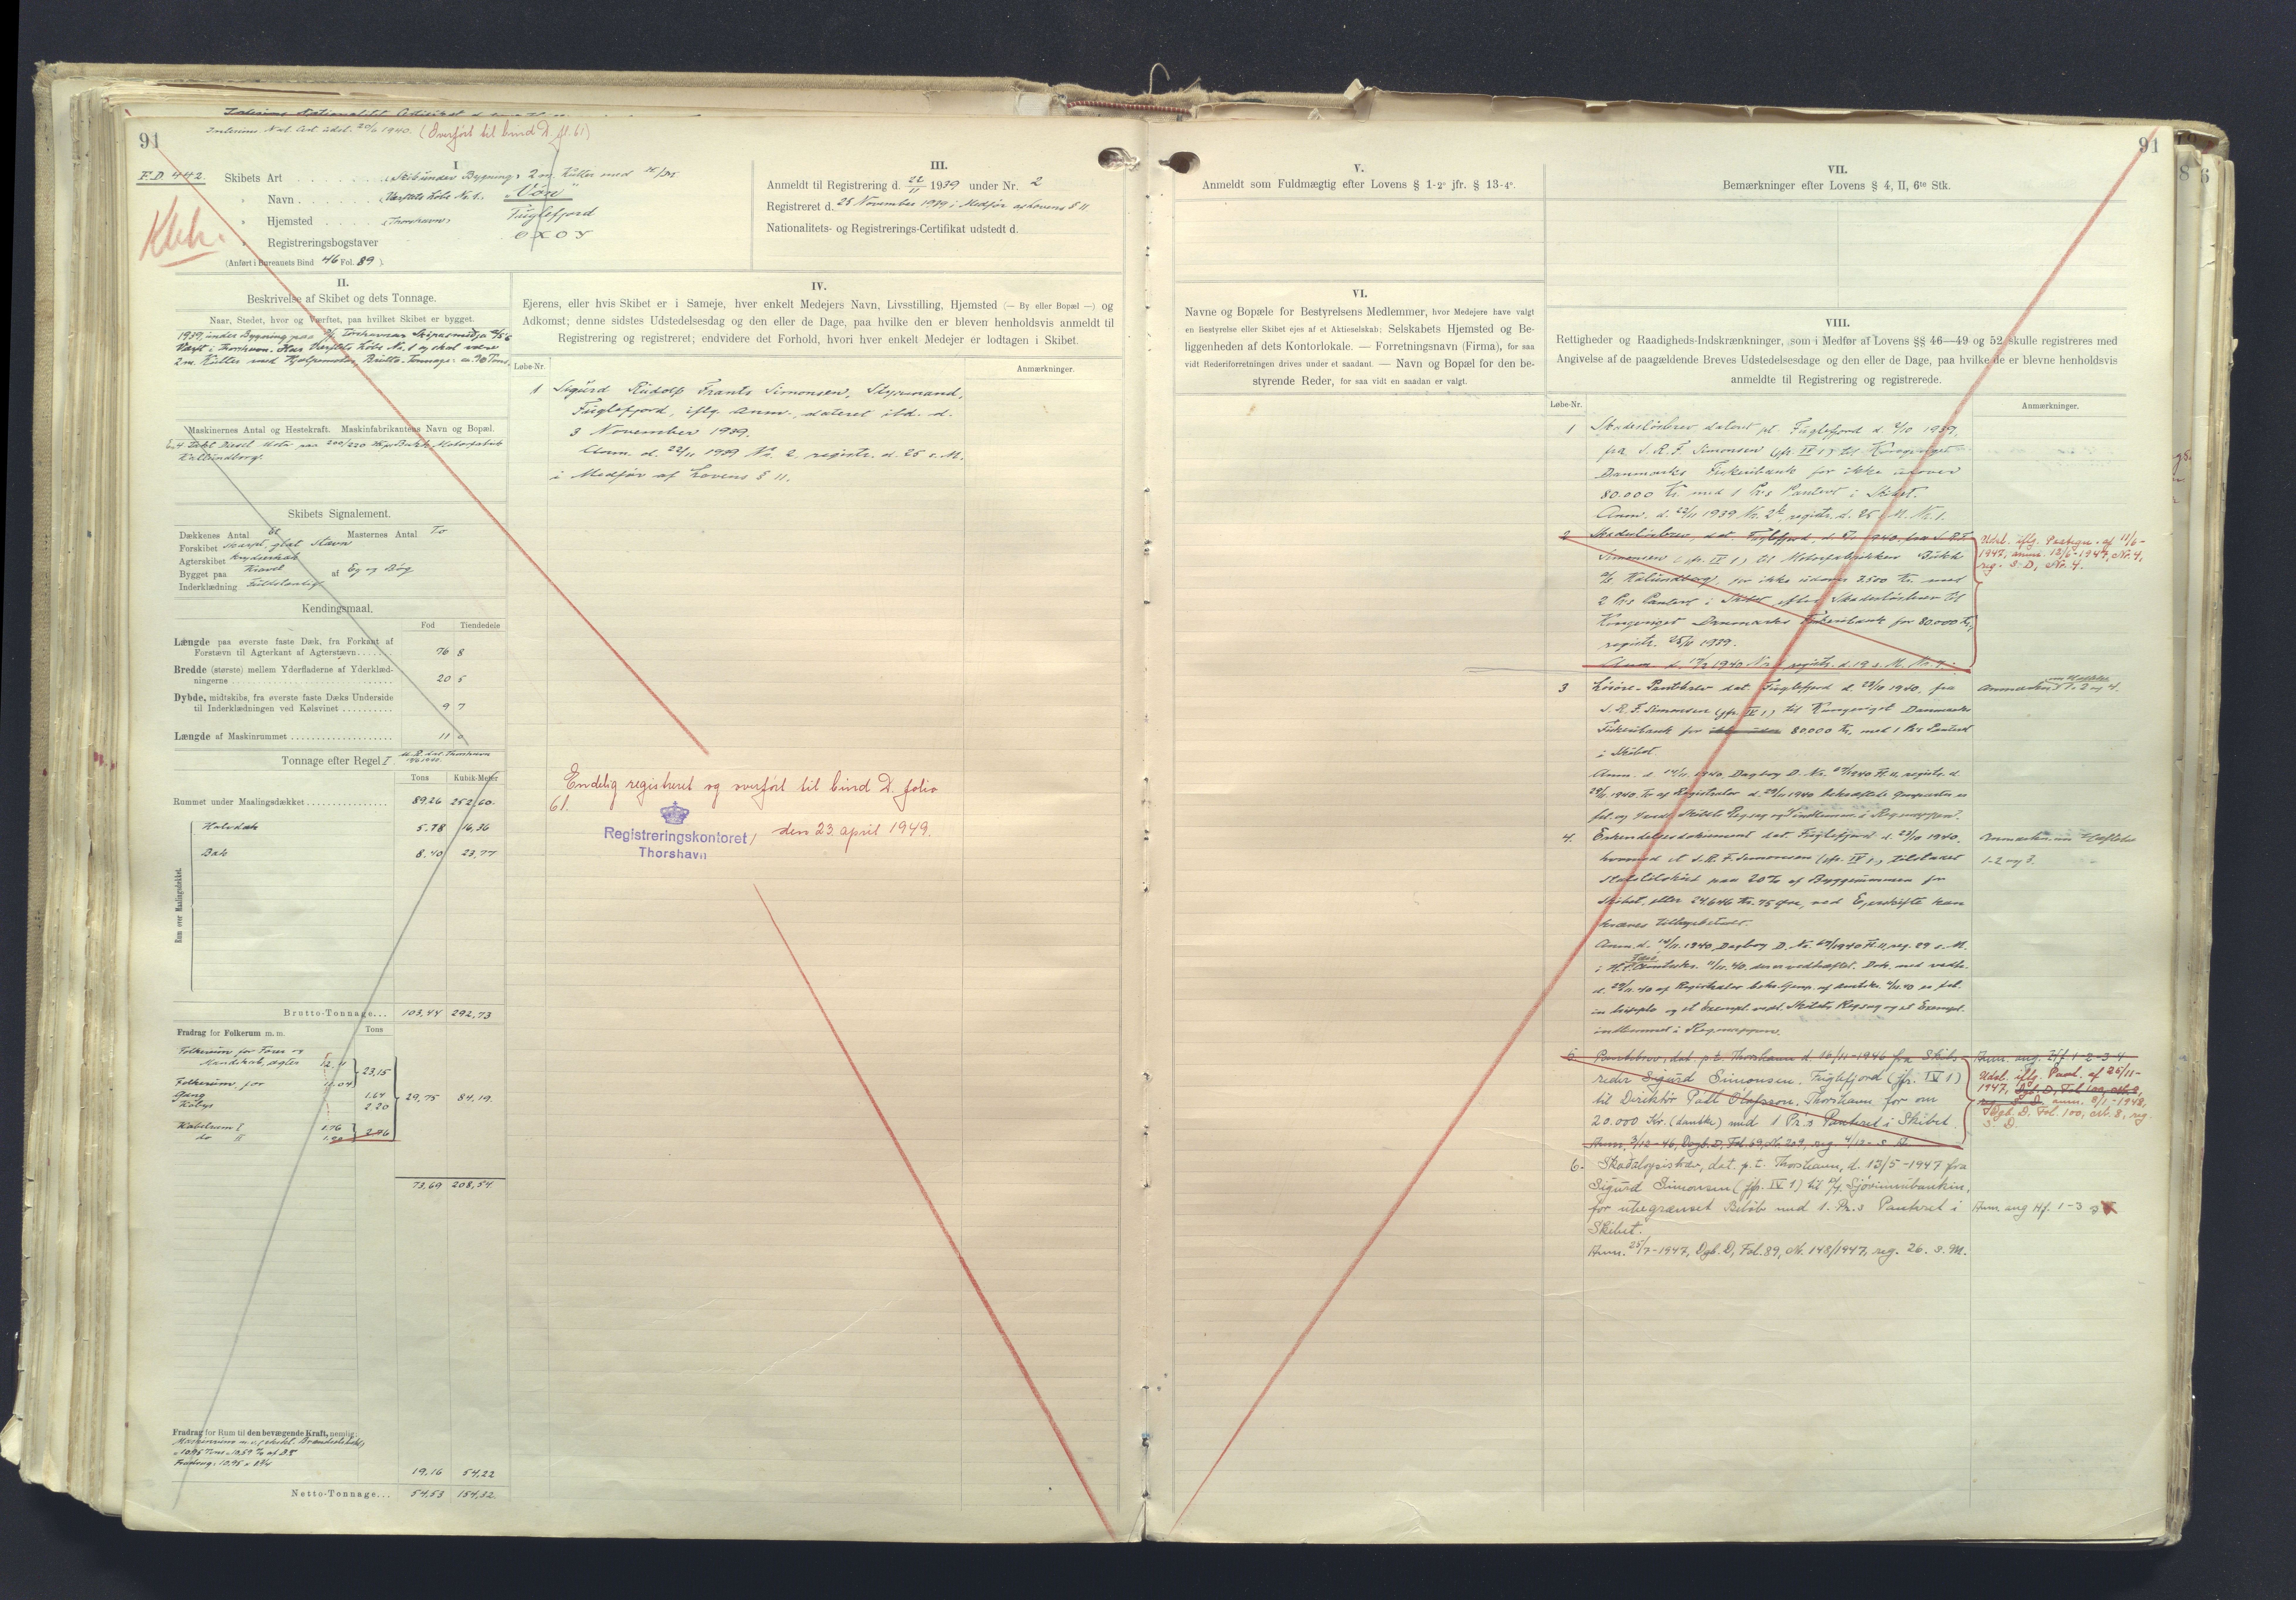 Interims Nat. Cert. udst. 20/6 1940. (Overført til bind D. fol. 61)
91
F.D. 442.
Klck.
I
Skibets Art „Skib under Bygning" 2 m. Kutter med
Navn „Værftets Løbe No. 1." „Von"
Hjemsted „Thorshavn" Fuglefjord
Registreringsbogstaver OXOY
(Anført i Bureauets Bind 46 Fol. 89 ).
II.
Beskrivelse af Skibet og dets Tonnage.
Naar, Stedet, hvor og Værftet, paa hvilket Skibet er bygget.
1939, under Bygning paa
Værft i Thorshavn. Har Værftets Løbe No. 1 og skal være
2 m. Kutter med Hjælpemotor, Brutto-Tonnage: ca. 70 Tons.
Maskinernes Antal og Hestekraft. Maskinfabrikantens Navn og Bopæl.
Diesel Motor paa 200/220 Motorfabrik
Kallundborg.
Skibets Signalement.
Dækkenes Antal Et Masternes Antal To
Forskibet skarpt, glat Stævn
Agterskibet Krydserhæk
Bygget paa Kravel af Eg og Bøg
Inderklædning Fuldstændig
Kendingsmaal.
Fod Tiendedele
Længde paa øverste faste Dæk, fra Forkant af
Forstævn til Agterkant af Agterstævn 76 8
Bredde (største) mellem Yderfladerne af Yderklæd-
ningerne 20 5
Dybde, midtskibs, fra øverste faste Dæks Underside
til Inderklædningen ved Kølsvinet 9 7
Længde af Maskinrummet 11 0
Tonnage efter Regel I. M. B. dat. Thorshavn
Tons Kubik-Meter
Rummet under Maalingsdækket 89,26 252,60
Rum over Maalingsdækket.
Halvdæk 5.78 16,36
Bak 8.40 23,77
Brutto-Tonnage... 103,44 292,73
Fradrag for Folkerum m. m. Tons
Folkerum for Fører og
Mandskab, agter 12.11
Folkerum, for 11.04 23,15
Gang 1.64
Kabys 2.20 29,75 84,19
Kabelrum I 1.76
do II 1.20 2.96
73,69 208,54
Fradrag for Rum til den bevægende Kraft, nemlig:
Maskinrum
= 10,95 Tons = 10,59 % af B.T.
Fradrag: 10,95 x
19,16 54,22
Netto-Tonnage... 54,53 154,32
III.
Anmeldt til Registrering d. 22/11 1939 under Nr. 2
Registreret d. 25 November 1939 i Medfør af Lovens § 11
Nationalitets- og Registrerings-Certifikat udstedt d.
IV.
Ejerens, eller hvis Skibet er i Sameje, hver enkelt Medejers Navn, Livsstilling, Hjemsted (— By eller Bopæl —) og
Adkomst; denne sidstes Udstedelsesdag og den eller de Dage, paa hvilke den er bleven henholdsvis anmeldt til
Registrering og registreret; endvidere det Forhold, hvori hver enkelt Medejer er lodtagen i Skibet.
Løbe-Nr. Anmærkninger.
1 Sigurd Rudolf Frants Simonsen, Styrmand,
Fuglefjord, iflg. Anm., dateret ibd. d.
3 November 1939.
Anm. d. 22/11 1939 Nr. 2, registr. d. 25 s. M.
i Medfør af Lovens § 11.
Endelig registreret og overført til bind D. folio
61.
Registreringskontoret,
Thorshavn
den 23. april 1949.
91
V.
Anmeldt som Fuldmægtig efter Lovens § 1-2° jfr. § 13-4°.
VI.
Navne og Bopæle for Bestyrelsens Medlemmer, hvor Medejere have valgt
en Bestyrelse eller Skibet ejes af et Aktieselskab; Selskabets Hjemsted og Be-
liggenheden af dets Kontorlokale. — Forretningsnavn (Firma), for saa
vidt Rederiforretningen drives under et saadant. — Navn og Bopæl for den be-
styrende Reder, for saa vidt en saadan er valgt.
VII.
Bemærkninger efter Lovens § 4, II, 6te Stk.
VIII.
Rettigheder og Raadigheds-Indskrænkninger, som i Medfør af Lovens §§ 46—49 og 52 skulle registreres med
Angivelse af de paagældende Breves Udstedelsesdage og den eller de Dage, paa hvilke de er blevne henholdsvis
anmeldte til Registrering og registrerede.
Løbe-Nr. Anmærkninger.
1 Skadesløsbrev dateret pt. Fuglefjord d. 2/10 1939,
fra S. R. F. Simonsen (jfr. IV 1) til Kongeriget
Danmarks Fiskeribank for ikke udover
80.000 Kr. med 1 Pr.s Panteret i Skibet.
Anm. d. 22/11 1939 Nr. 2, registr. d. 25 s. M. Nr. 1.
2 Skadesløsbrev, dat. Fuglefjord, d. 1940, fra S. R. F.
Simonsen (jfr. IV 1) til Motorfabrikken Bukh
A/S, Kalundborg, for ikke udover 7.500 Kr. med
2 Pr.s Panteret i Skibet, efter Skadesløsbrev til
Kongeriget Danmarks Fiskeribank for 80.000 Kr.,
registr. 25/11 1939.
Anm. d. 1940 Nr. registr. d. 19 s. M. Nr. 1.
Udsl. iflg. Påtegn. af 11/6-
1947, anm. 12/6-1947, Nr. 4,
reg. S. D, Nr. 4.
3 Løsøre-Pantebrev dat. Fuglefjord d. 23/10 1940, fra
S. R. F. Simonsen (jfr. IV 1) til Kongeriget Danmarks
Fiskeribank for 80.000 Kr., med 1 Pr.s Panteret
i Skibet.
Anm. d. 14/11. 1940. Dagbog D. Nr.
29/11. 1940.
Anmærkn. om Hæftelse 1-2 og 4.
4. Erkendelsesdokument dat. Fuglefjord d. 23/10 1940,
hvorved et S. R. F. Simonsen (jfr. IV 1) tilstaaet
Statstilskud paa 20 % af Byggesummen for
Skibet, eller 24646 Kr. 75 Øre, ved Ejerskifte kan
kræves tilbagebetalt.
Anm. d. 14/11. 1940, Dagbog D. Nr. reg. 29 s. M.
indlemmet i Reg.mappen.
Anmærkn. om Hæftelse
1-2 og 3.
5 Pantebrev, dat. p.t. Thorshavn d. 16/11-1946 fra Skibs-
reder Sigurd Simonsen, Fuglefjord (jfr. IV 1)
til Direktør Poll Olafsson, Thorshavn for om
20.000 Kr. (danske) med 1 Pr.s Panteret i Skibet.
Anm. 3/12-46, Dagb. D, Fol. 69, Nr. 209, reg. 4/12- s. A.
Anm. ang. Hf. 1-2-3-4
Udsl. iflg. Paat. af 25/11-
1947, Dgb. D, Fol 100, Nr. 8,
reg. S. D. anm. 8/1-1948,
Dgb. D. Fol. 100, Nr. 8, reg.
S. D.
6. Skadaloysisbræv, dat. p.t. Thorshavn, d. 13/5-1947 fra
Sigurd Simonsen (jfr. IV 1) til P/f. Sjóvinnubankin,
for ubegrænset Beløb med 1. Pr.s Panteret i
Skibet.
Anm. 25/7-1947, Dgb. D, Fol. 89, Nr. 148/1947, reg. 26. s. M.
Anm. ang Hf. 1-3